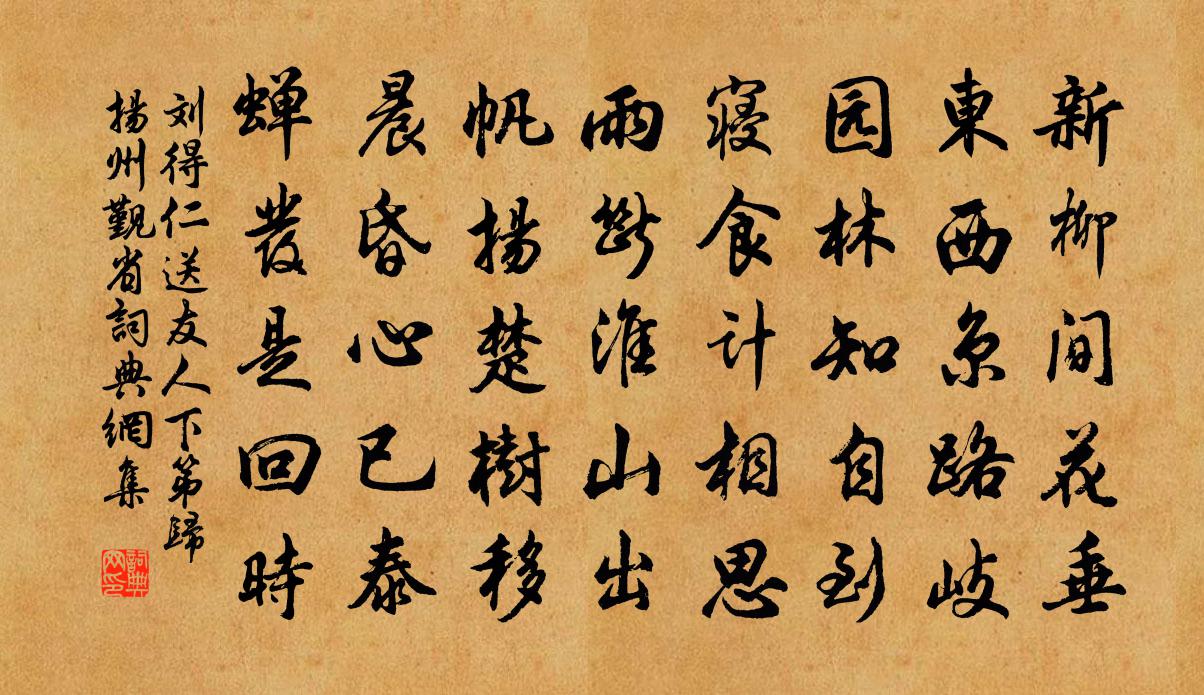 新柳間花垂
東西京路岐
园林知自到
寝食计相思
雨断淮山出
帆揚楚樹移
晨昏心已泰
蝉發是回時
刘得仁送友人下第歸
揚州覲省詞典網集
詞典网印